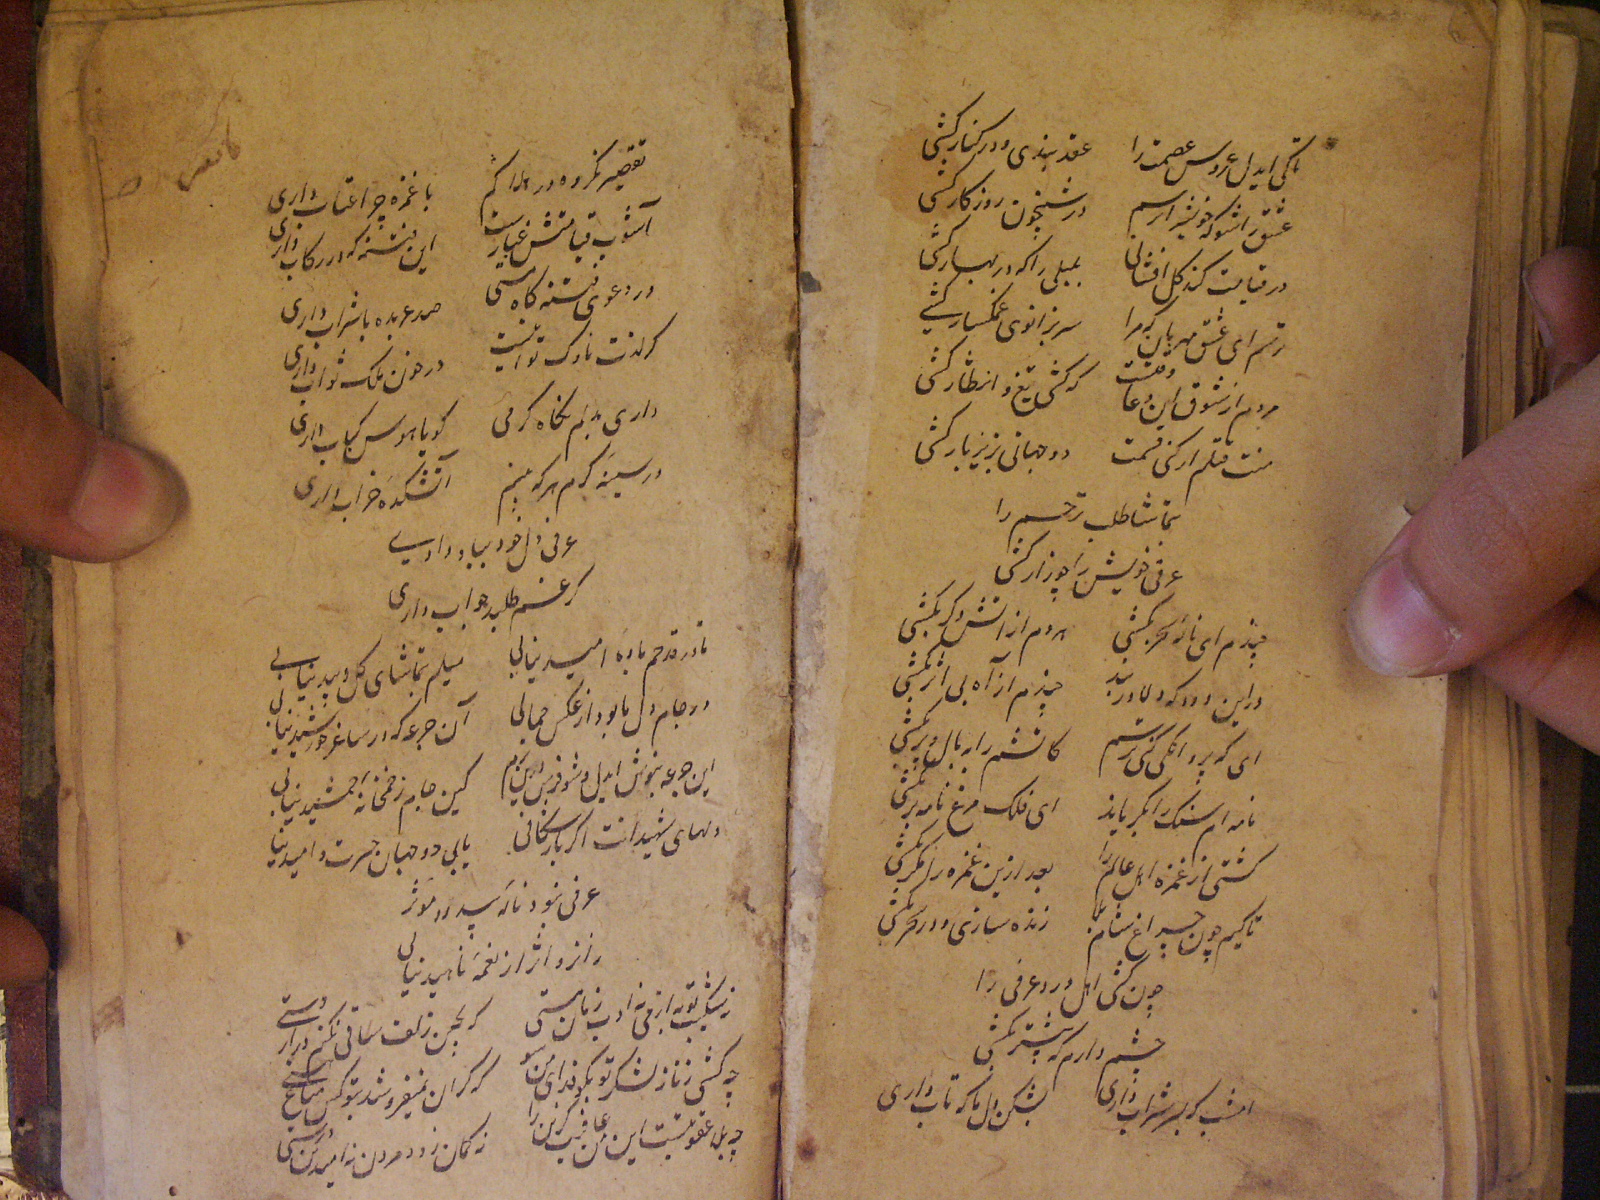 تا کی ایدل عروس عصمت را عقد بندی و در کنار کشی
عشق را شو که خویش را رسم در شبیخون روزگار کشی
در قیامت کند گل افشانی بلبلی را که در بهار کشی
ترسم ای عشق مهربان که مرا بر سر زانوی غمگسار کشی
مردم از شوق این وقتست که کشی تیغ و انتظار کشی
منت قتلم ار کنی قسمت دو جهانی بزیر بار کشی
بتماشا طلب ترحم را
عرفی خویش را چو زار کشی
چندم ای نالهٔ بکشی هر دم از آتش دگر بکشی
در این درد که چندم از آه بی اثر بکشی
ای که پروانگی کنی ترسم کاتشم را به بال و پر بکشی
نامه ام سنگ را ای فلک مرغ نامه بر بکشی
کشتی از غمزه اهل عالم را بعد ازین غمزه را مگر بکشی
تا کیم چون چراغ شام بلا زنده سازی و در سحر بکشی
چون کشی اهل درد عرفی را
چشم دارم که پیشتر بکشی
امشب که بسر شراب داری بشکن دل ما که تاب داری
تقصیر نکرده در هلاکم با غمزه چرا عتاب داری
آشوب قیامتش غباریست این فتنه که در رکاب داری
در دعوی فتنه گاه مستی صد عربده با شراب داری
گر لذت ناوک تو اینست در خون ملک ثواب داری
داری بدلم نگاه گرمی گویا هوس کباب داری
در سینهٔ گرم هر که بینم آتشکدهٔ خراب داری
عرفی دل خود بباد دادی
گر غم طلبد جواب داری
تا در قدحم بادهٔ امید نیابی میلم بتماشای گل و بید نیابی
در جام دل ما بود از عکس جمالی آن جرعه که در ساغر خورشید نیابی
این جرعه بنوش ایدل و کین جام ز خمخانهٔ جمشید نیابی
دلهای شهیدانت اگر باز شکافی یابی دو جهان حسرت و امید نیابی
عرفی نبود نالهٔ بیدرد موثر
رازو اثر از نغمهٔ ناهید نیابی
ز شکیب توبه ادب زمان مستی که بچین زلف ساقی نکنم دراز دستی
چه کشی ز ناز لشکر تو بگو فدای من شو که گران نمیفروشد بتو کس متاع هستی
چه بلا عقوبتست این من عافیت گزین را